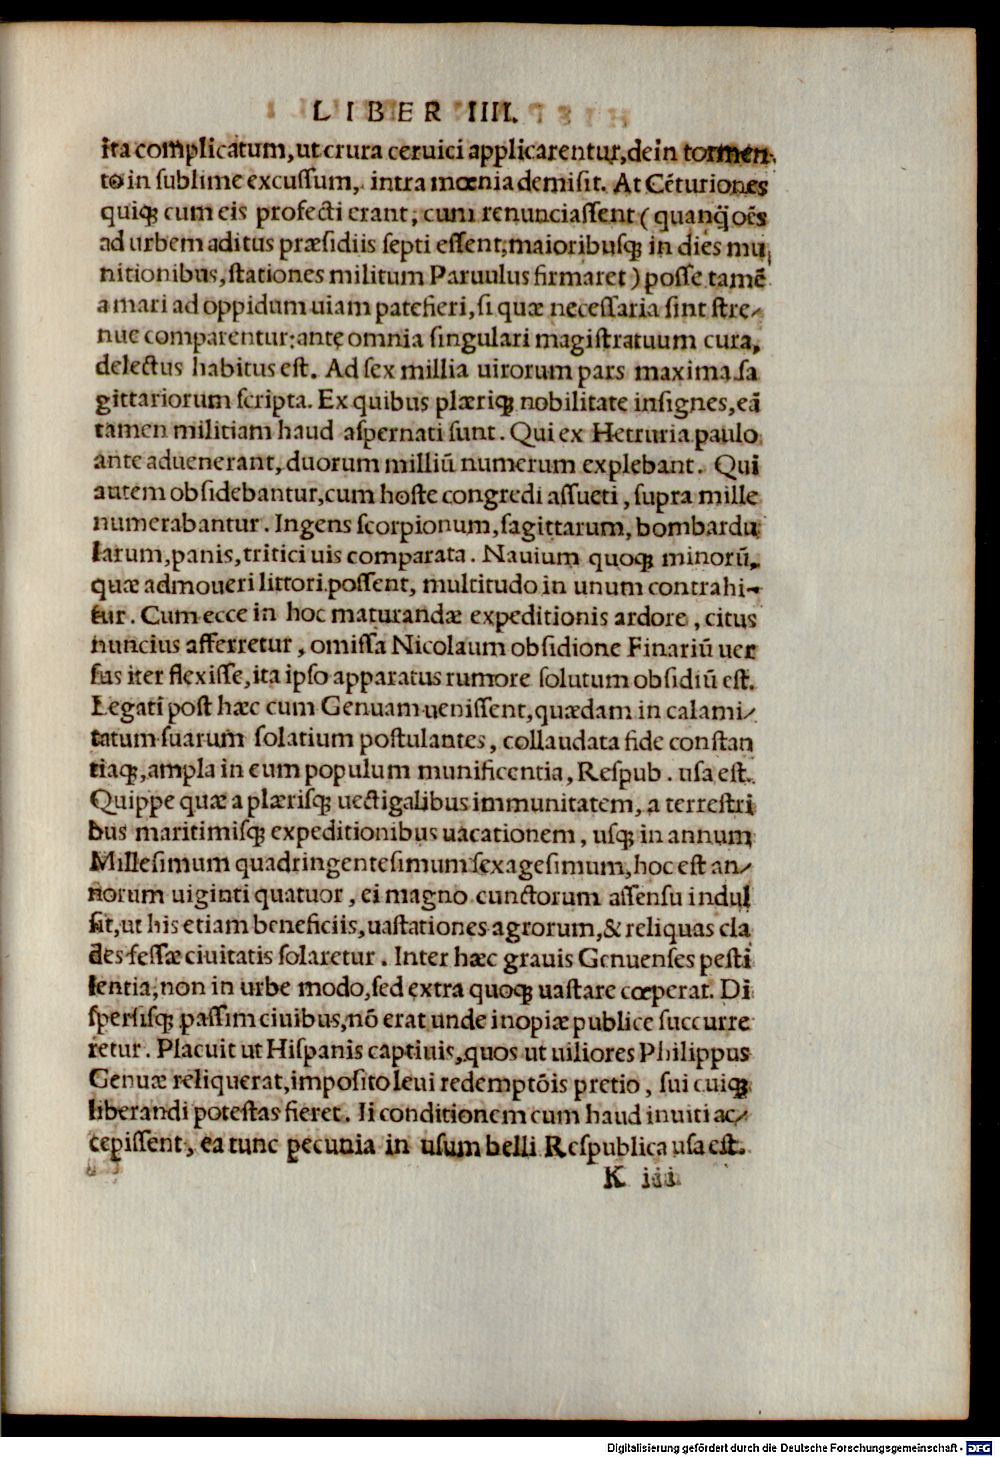 LIBER IIII.
ita complicatum, ut crura ceruici applicarentur, dein tormen-
to in sublime excussum, intra mœnia demisit. At Cēturiones
quiq; cum eis profecti erant, cum renunciassent (quanq̃ oēs
ad urbem aditus præsidiis septi essent, maioribusq; in dies mu
nitionibus, stationes militum Paruulus firmaret) posse tamē
a mari ad oppidum uiam patefieri, si quæ necessaria sint stre-
nue comparentur: ante omnia singulari magistratuum cura,
delectus habitus est. Ad sex millia uirorum pars maxima sa
gittariorum scripta. Ex quibus plæriq; nobilitate insignes, eā
tamen militiam haud aspernati sunt. Qui ex Hetruria paulo
ante aduenerant, duorum milliū numerum explebant. Qui
autem obsidebantur, cum hoste congredi assueti, supra mille
numerabantur. Ingens scorpionum, sagittarum, bombardu
larum, panis, tritici uis comparata. Nauium quoq; minorū,
quæ admoueri littori possent, multitudo in unum contrahi-
tur. Cum ecce in hoc maturandæ expeditionis ardore, citus
nuncius afferretur, omissa Nicolaum obsidione Finariū uer
sus iter flexisse, ita ipso apparatus rumore solutum obsidiū est.
Legati post hæc cum Genuam uenissent, quædam in calami-
tatum suarum solatium postulantes, collaudata fide constan
tiaq;, ampla in eum populum munificentia, Respub. usa est.
Quippe quæ a plærisq; uectigalibus immunitatem, a terrestri
bus maritimisq; expeditionibus uacationem, usq; in annum
Millesimum quadringentesimum sexagesimum, hoc est an-
norum uiginti quatuor, ei magno cunctorum assensu indul
sit, ut his etiam beneficiis, uastationes agrorum, & reliquas cla
des fessæ ciuitatis solaretur. Inter hæc grauis Genuenses pesti
lentia, non in urbe modo, sed extra quoq; uastare cœperat. Di
spersisq; passim ciuibus, nō erat unde inopiæ publice succurre
retur. Placuit ut Hispanis captiuis, quos ut uiliores Philippus
Genuæ reliquerat, imposito leui redemptōis pretio, sui cuiq;
liberandi potestas fieret. Ii conditionem cum haud inuiti ac-
cepissent, ea tunc pecunia in usum belli Respublica usa est.
K iii
Digitalisierung gefördert durch die Deutsche Forschungsgemeinschaft - DFG